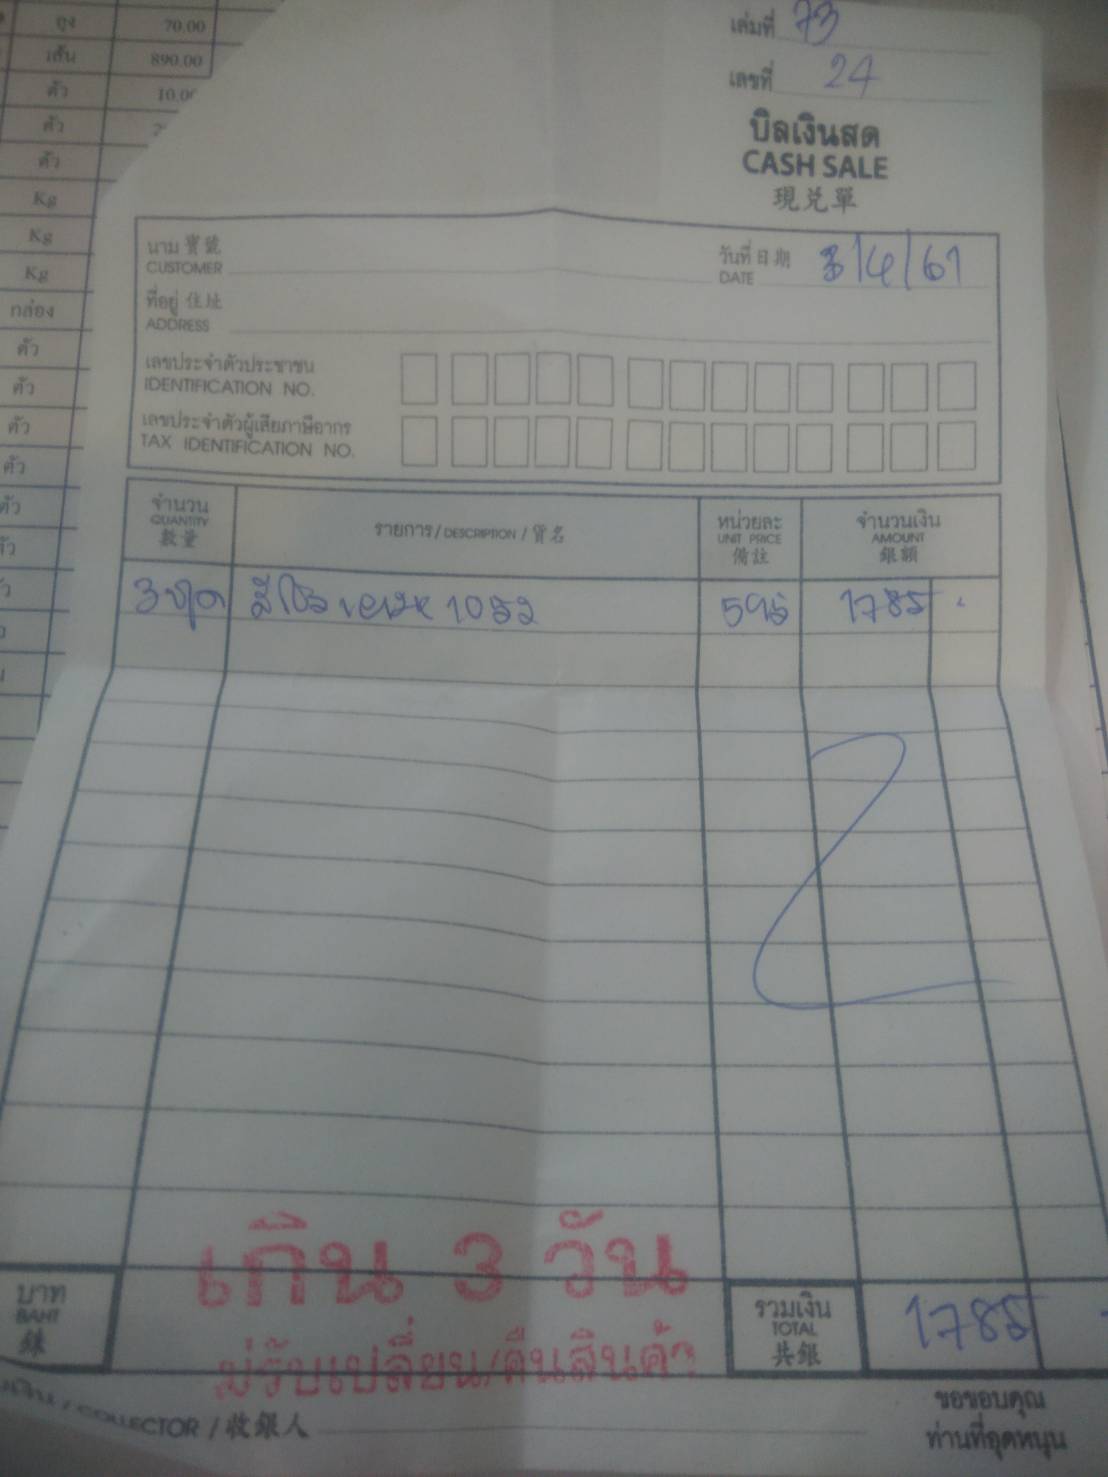 ถุง 70.00
เส้น 890.00
ตัว
ตัว
ตัว
Kg
Kg
Kg
กล่อง
ตัว
ตัว
ตัว
ตัว
ตัว
เล่มที่ 73
เลขที่ 24
บิลเงินสด
CASH SALE
現兌單
นาม 寶號
CUSTOMER
วันที่ 日期 3/4/61
DATE
ที่อยู่ 住址
ADDRESS
เลขประจำตัวประชาชน
IDENTIFICATION NO.
เลขประจำตัวผู้เสียภาษีอากร
TAX IDENTIFICATION NO.
จำนวน
QUANTITY
數量
รายการ / DESCRIPTION / 貨名
หน่วยละ
UNIT PRICE
備註
จำนวนเงิน
AMOUNT
銀額
3 ชุด 595 1785
เกิน 3 วัน
รับเปลี่ยน/คืนสินค้า
บาท
BAHT
銖
รวมเงิน
TOTAL
共銀
1785
COLLECTOR / 收銀人
ขอขอบคุณ
ท่านที่อุดหนุน